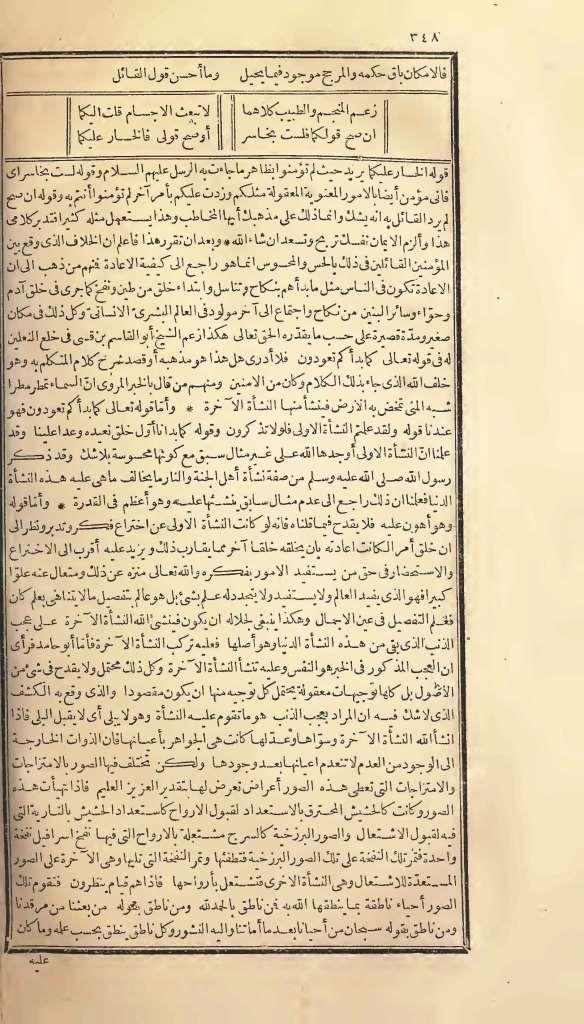 ٣٤٨
فالامكان باق حكمه والمرجح موجود فيما يحيل وما أحسن قول القائل
زعم المنجم والطبيب كلاهما لا تبعث الاجسام قلت اليكما
ان صح قولكما فلست بخاسر أو صح قولى فالخسار عليكما
قوله الخسار عليكما يريد حيث لم تؤمنوا بظاهر ما جاءت به الرسل عليهم السلام وقوله لست بخاسر أى
فانى مؤمن أيضا بالامور المعنوية المعقولة مثلكم وزدت عليكم بأمر آخر لم تؤمنوا أنتم به وقوله ان صح
لم يرد القائل به انه يشك وانما ذلك على مذهبك أيها المخاطب وهذا يستعمل مثله كثيرا فتدبر كلامى
هذا وألزم الايمان نفسك تربح وتسعد ان شاء الله * وبعد ان تقرر هذا فاعلم ان الخلاف الذى وقع بين
المؤمنين القائلين فى ذلك بالحس والمحسوس انما هو راجع الى كيفية الاعادة فمنهم من ذهب الى ان
الاعادة تكون فى الناس مثل ما بدأهم بنكاح وتناسل وابتداء خلق من طين ونفخ كما جرى فى خلق آدم
وحواء وسائر البنين من نكاح واجتماع الى آخر مولود فى العالم البشرى الانسانى وكل ذلك فى مكان
صغير ومدة قصيرة على حسب ما يقدره الحق تعالى هكذا زعم الشيخ أبو القاسم بن قسى فى خلع النعلين
له فى قوله تعالى كما بدأكم تعودون فلا أدرى هل هذا هو مذهبه أو قصد شرح كلام المتكلم به وهو
خلف الله الذى جاء بذلك الكلام وكان من الاميين ومنهم من قال بالخبر المروى انّ السماء تمطر مطرا
شبه المنى تمخض به الارض فينشأ منها النشأة الآخرة * وأمّا قوله تعالى كما بدأكم تعودون فهو
عندنا قوله ولقد علمتم النشأة الاولى فلولا تذكرون وقوله كما بدأنا أول خلق نعيده وعدا علينا وقد
علمنا انّ النشأة الاولى أوجدها الله على غير مثال سبق مع كونها محسوسة بلا شك وقد ذكر
رسول الله صلى الله عليه وسلم من صفة نشأة أهل الجنة والنار ما يخالف ما هى عليه هذه النشأة
الدنيا فعلمنا ان ذلك راجع الى عدم مثال سابق ننشئها عليه وهو أعظم فى القدرة * وأمّا قوله
وهو أهون عليه فلا يقدح فيما قلناه فانه لو كانت النشأة الاولى عن اختراع فكر وتدبر ونظر الى
ان خلق أمرا لكانت اعادته بان يخلقه خلقا آخر مما يقارب ذلك ويزيد عليه أقرب الى الاختراع
والاستحضار فى حق من يستفيد الامور بفكره والله تعالى منزه عن ذلك ومتعال عنه علوّا
كبيرا فهو الذى يفيد العالم ولا يستفيد ولا يتجدد له علم بشئ بل هو عالم بتفصيل ما لا يتناهى بعلم كلى
فعلم التفصيل فى عين الاجمال وهكذا ينبغى لجلاله ان يكون فينشئ الله النشأة الآخرة على عجب
الذنب الذى يبقى من هذه النشأة الدنيا وهو أصلها فعليه تركب النشأة الآخرة فأما أبو حامد فرأى
ان العجب المذكور فى الخبر هو النفس وعليه تنشأ النشأة الآخرة وكل ذلك محتمل ولا يقدح فى شئ من
الاصول بل كلها توجيهات معقولة يحتمل كل توجيه منها ان يكون مقصودا والذى وقع به الكشف
الذى لا شك فيه ان المراد بعجب الذنب هو ما تقوم عليه النشأة وهو لا يبلى أى لا يقبل البلى فاذا
انشأ الله النشأة الآخرة وسوّاها وعدّلها كانت هى الجواهر بأعيانها فان الذوات الخارجة
الى الوجود من العدم لا تنعدم اعيانها بعد وجودها ولكن تختلف فيها الصور بالامتزاجات
والامتزاجات التى تعطى هذه الصور أعراض تعرض لها بتقدير العزيز العليم فاذا تهيأت هذه
الصور وكانت كالحشيش المحترق بالاستعداد لقبول الارواح كاستعداد الحشيش بالنارية التى
فيه لقبول الاشتعال والصور البرزخية كالسرج مشتعلة بالارواح التى فيها نفخ اسرافيل نفخة
واحدة فتمر تلك النفخة على تلك الصور البرزخية فتطفئها وتمر النفخة التى تليها وهى الآخرة على الصور
المستعدّة للاشتعال وهى النشأة الاخرى فتشتعل بأرواحها فاذا هم قيام ينظرون فتقوم تلك
الصور أحياء ناطقة بما ينطقها الله به فمن ناطق بالحمد لله ومن ناطق بقوله من بعثنا من مرقدنا
ومن ناطق بقوله سبحان من أحيانا بعد ما أماتنا واليه النشور وكل ناطق ينطق بحسب علمه وما كان
عليه